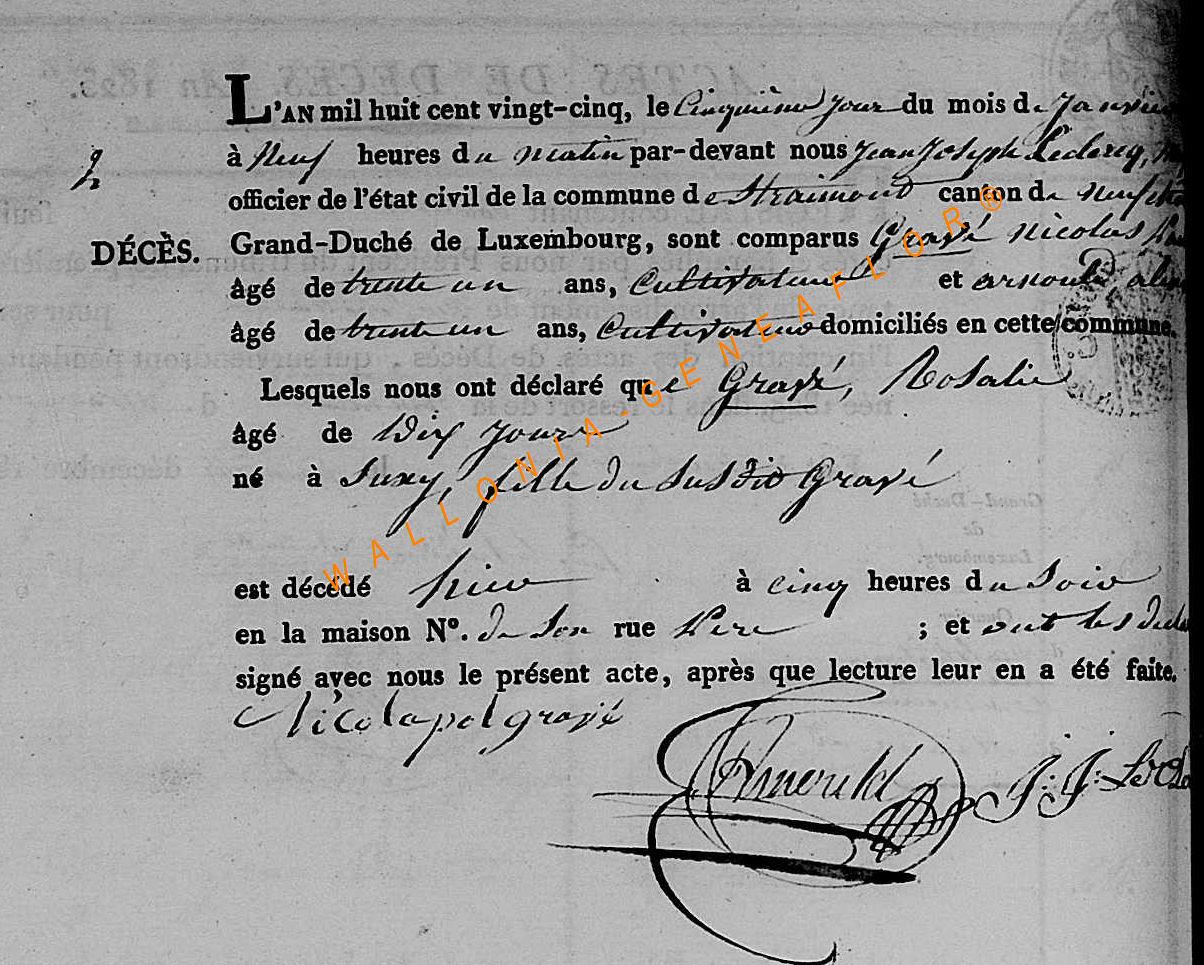 L'AN mil huit cent vingt-cinq, le Cinquième jour du mois de Janvier
2
à Neuf heures du matin par-devant nous Jean Joseph Leclercq,
officier de l'état civil de la commune de Straimont canton de neufch
DÉCÈS.
Grand-Duché de Luxembourg, sont comparus Gravé nicolas
âgé de trente un ans, Cultivateur et arnould
âgé de trente un ans, Cultivateur domiciliés en cette commune.
Lesquels nous ont déclaré que Gravé, Rosalie
âgé de Dix jours
né à Suxy, fille du susdit Gravé
est décédé hier à cinq heures du soir
en la maison N°. de son rue Père ; et ont les
signé avec nous le présent acte, après que lecture leur en a été faite.
Nicola pol gravé
Arnould
J: J: Lecl
WALLONIA-GENEAFLOR®